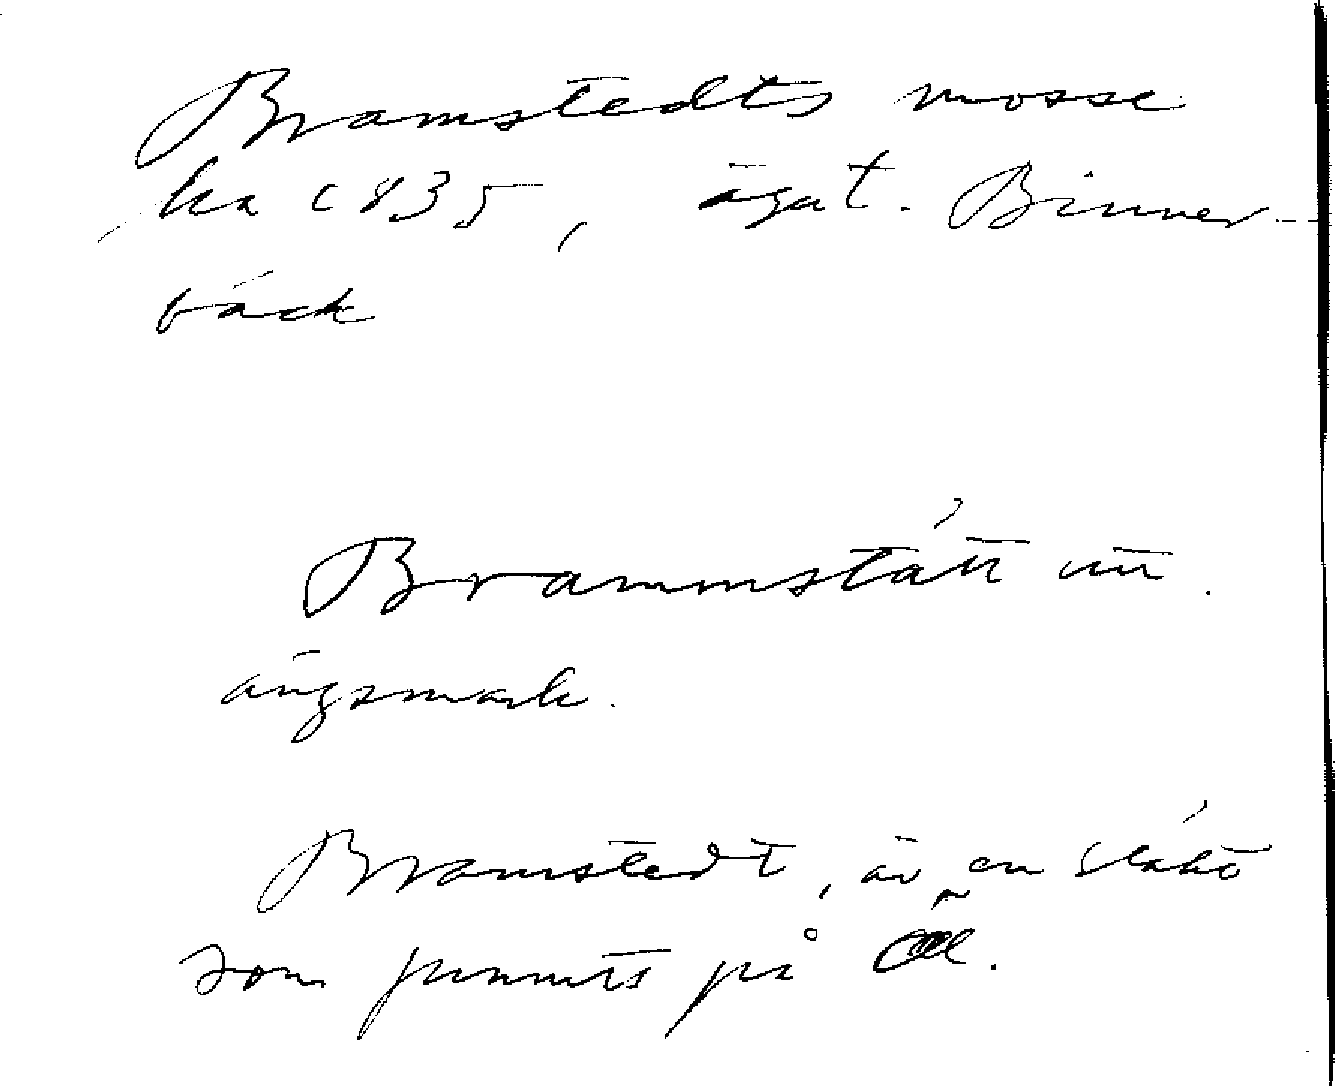 Bramstedts mosse
ka 1835, ägat. Binner-
bäck
Brammstätt utt.
ängsmark.
Bramstedt, är en släkt
som funnits på Öl.